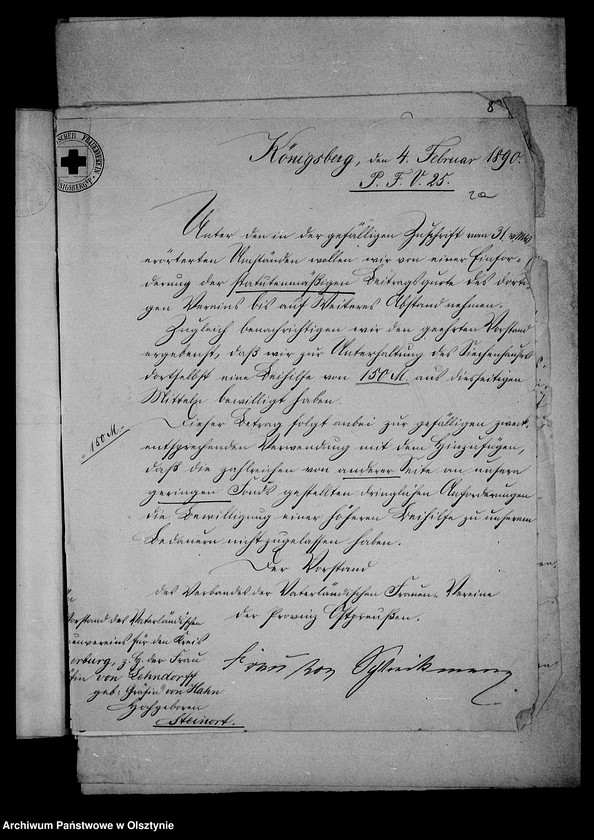 8
Königsberg, den 4. Februar 1890.
P. F. V. 25.
Unter den in der gefälligen Zuschrift vom 31. v. Mts.
erörterten Umständen wollen wir von einer Einfor-
derung der statutenmäßigen Beitragsquote des dorti-
gen Vereins bis auf Weiteres Abstand nehmen.
Zugleich benachrichtigen wir den geehrten Vorstand
ergebenst, daß wir zur Unterhaltung des Siechenhauses
dortselbst eine Beihilfe von 150 M. aus diesseitigen
Mitteln bewilligt haben.
Dieser Betrag folgt anbei zur gefälligen zweck-
150 M.
entsprechenden Verwendung mit dem Hinzufügen,
daß die zahlreichen von anderer Seite an unsern
geringen Fonds gestellten dringlichen Anforderungen
die Bewilligung einer höheren Beihilfe zu unserem
Bedauern nicht zugelassen haben.
Der Vorstand
des Verbandes der Vaterländischen Frauen-Vereine
der Provinz Ostpreußen.
Frau von
orstand des Vaterländischen
uenvereins für den Kreis
erburg, z. H. der Frau
äfin von Lehndorff
geb: Gräfin von Hahn
Hochgeboren
Steinort.
Archiwum Państwowe w Olsztynie